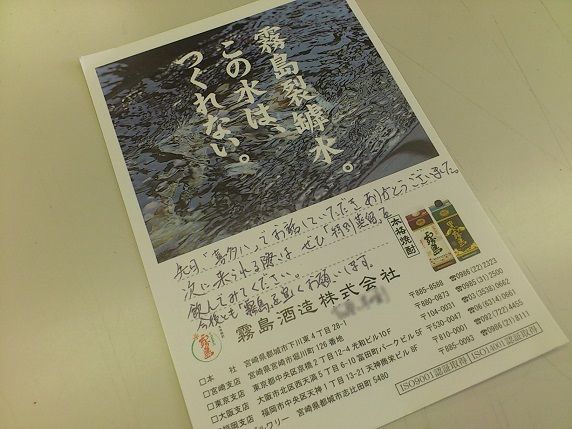 霧島裂罅水。
この水は、
つくれない。
先日、「喜多八」でお話していただきありがとうございました。
次に来られる際は ぜひ「特別蒸留」を
飲んでみてください。
今後も「霧島」を宜しくお願いします。
本格焼酎
霧島
霧島酒造株式会社
□本 社 宮崎県都城市下川東4丁目28-1
〒885-8588 ☎0986(22)2323
□宮崎支店 宮崎県宮崎市堀川町126番地
〒880-0873 ☎0985(31)2500
□東京支店 東京都中央区京橋2丁目12-4光和ビル10F
〒104-0031 ☎03(3536)0662
□大阪支店 大阪市北区西天満5丁目6-10富田町パークビル5F
〒530-0047 ☎06(6314)0661
□福岡支店 福岡市中央区天神1丁目13-21天神商栄ビル8F
〒810-0001 ☎092(722)4455
ワリー 宮崎県都城市志比田町5480
〒885-0093 ☎0986(21)8111
ISO9001認証取得 ISO14001認証取得